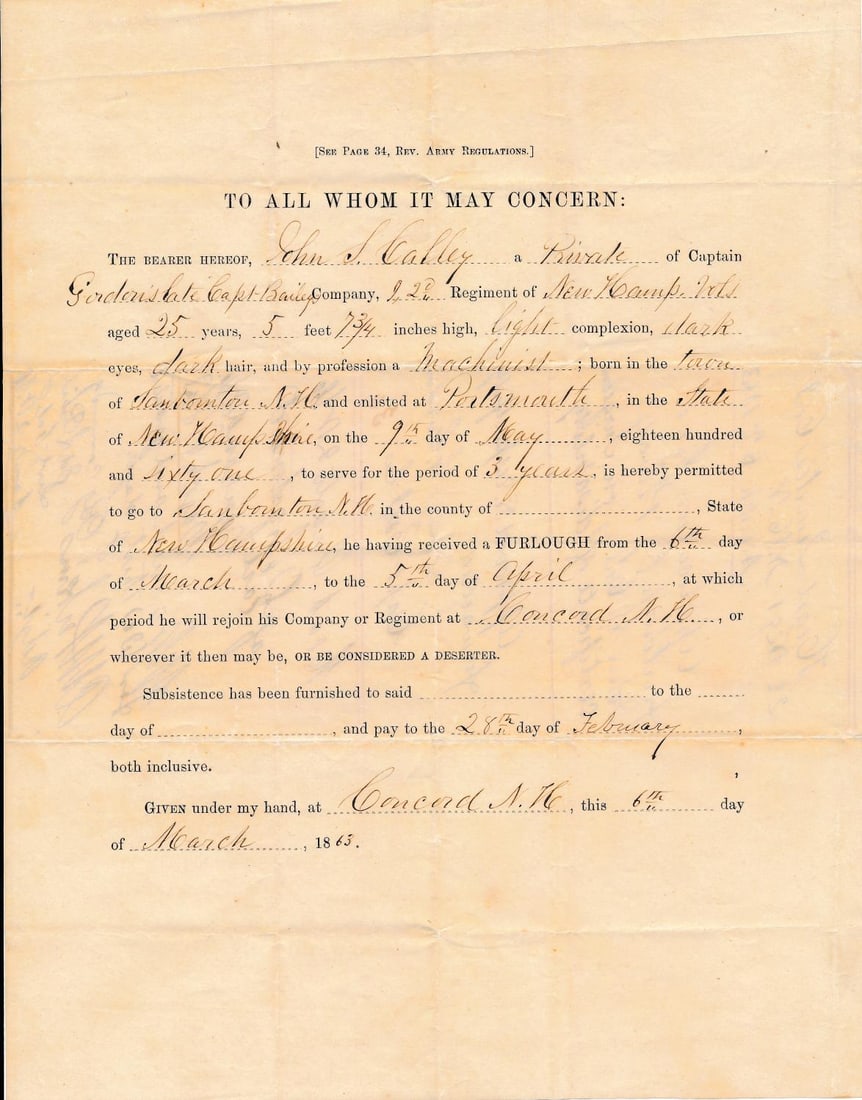 [SEE PAGE 34, REV. ARMY REGULATIONS.]
TO ALL WHOM IT MAY CONCERN:
THE BEARER HEREOF, John S. Calley a Private of Captain
Gordon's late Capt Bailey's Company, 2d Regiment of New Hamp. Vols
aged 25 years, 5 feet 7 3/4 inches high, light complexion, dark
eyes, dark hair, and by profession a Machinist; born in the town
of Sanbornton N.H. and enlisted at Portsmouth, in the State
of New Hampshire, on the 9th day of May, eighteen hundred
and sixty one, to serve for the period of 3 years, is hereby permitted
to go to Sanbornton N.H. in the county of , State
of New Hampshire, he having received a FURLOUGH from the 6th day
of March, to the 5th day of April, at which
period he will rejoin his Company or Regiment at Concord N.H., or
wherever it then may be, OR BE CONSIDERED A DESERTER.
Subsistence has been furnished to said to the
day of , and pay to the 28th day of February,
both inclusive.
GIVEN under my hand, at Concord N.H., this 6th day
of March, 1863.